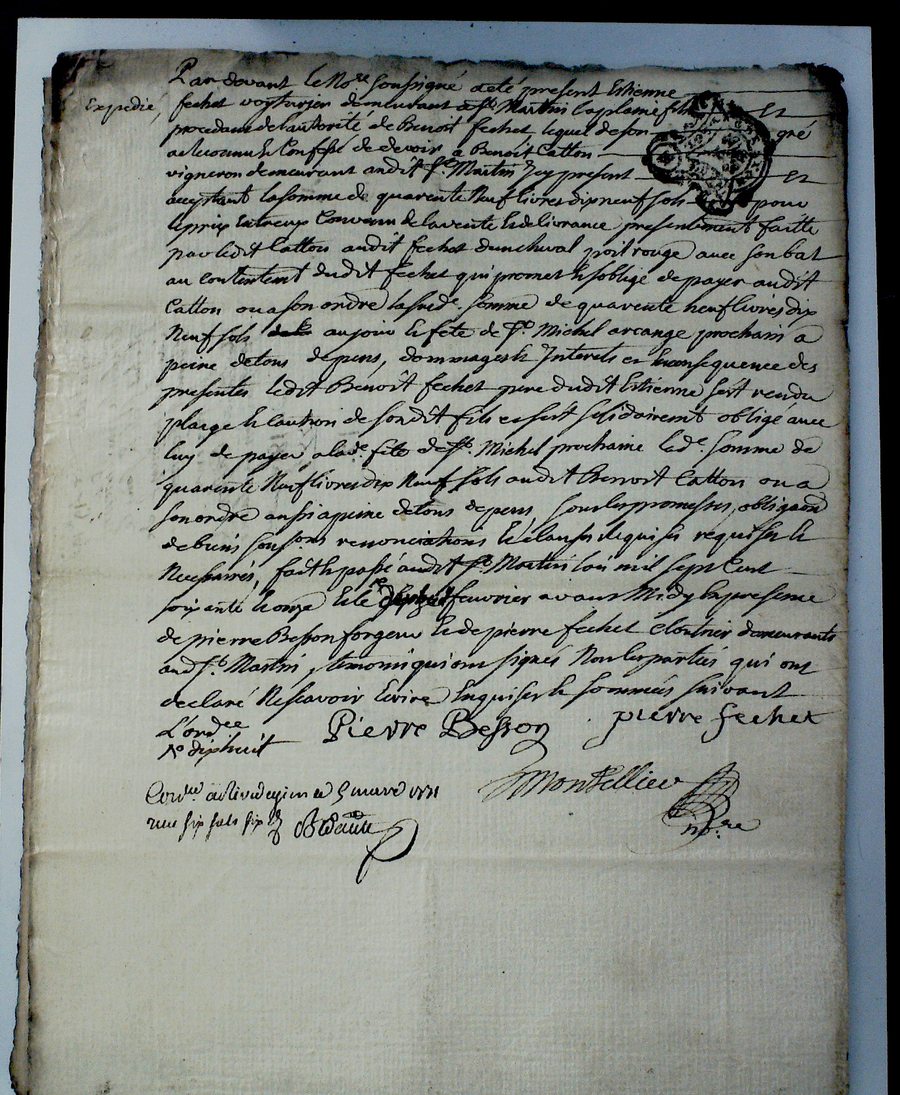 Par devant le No.re Soussigné a été présent Estienne
Expedié,
fechet voyturier demeurant a St. Martin la plaine fils Et
procedant de l'autorité de Benoit fechet lequel de son gré
a reconnu & Confessé de devoir a Benoit Catton
vigneron demeurant audit St. Martin Icy present Et
acceptant la somme de quarente Neuf livres dix neuf sols pour
le prix Entreux Convenu de la vente & delivrance presentement faitte
par ledit Catton audit fechet d'un cheval poil rouge avec son bat
au Contentement dudit fechet qui promet & s'oblige de payer audit
Catton ou a son ordre la susd.e Somme de quarente neuf livres dix
Neuf sols au jour & fete de St. Michel arcange prochain a
peine de tous depens, dommages & Interets et en consequence des
presentes ledit Benoit fechet pere dudit Estienne s'est rendu
plaige & caution de sondit fils et s'est solidairem.t obligé avec
luy de payer a lad.e fete de St. Michel prochaine lad.e Somme de
quarente Neuf livres dix Neuf sols audit Benoit Catton ou a
son ordre aussi a peine de tous depens Sous les promesses, obligaon
de biens soumissions renonciations & clauses requises &
Necessaires, fait & passé audit St. Martin l'an mil sept Cent
soixante & onze & le fevrier avant Midy En presence
de pierre Besson forgeur & de pierre fechet cloutrier demeurants
aud. St. Martin, temoins qui ont signés Non les parties qui ont
declaré Ne scavoir Ecrire Enquises & sommées suivant
L'ord.ce
*e dixhuit
Pierre Besson
pierre fechet
Con.lé a Rivedegier le 5 mars 1771
reçu six sols six d
Montellier
no.re